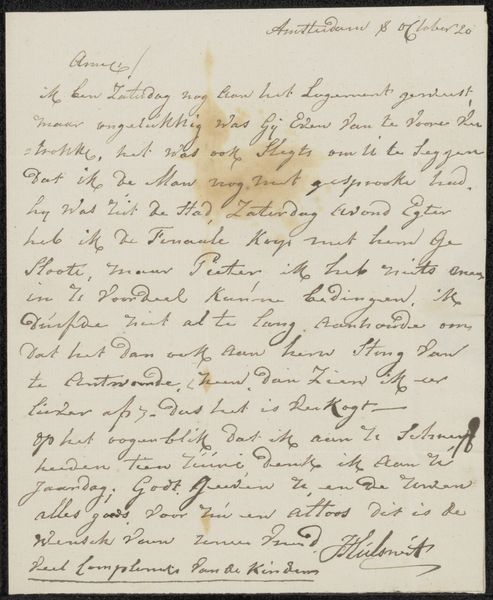 Amsterdam 8 October 20
Amice!
ik ben Zaturdag nog aan het Logement geweest,
maar ongelukkig was gij Even van te voore ver
trokke, het was ook Slegts om U te Seggen
Dat ik de Man nog niet gesprooke had.
hy was uit de Stad, Zaturdag avond Egter
heb ik de Finaale Koop met hem Ge
Sloote, maar Pieter ik heb niets meer
in U Voordeel kunne bedingen, ik
durfde niet al te lang aanhoude om
Dat het dan ook aan hem Stong van
te antwoorde, neen, dan Zien ik er
liever af, dus het is verkogt
op het oogenblik dat ik aan U Schreef
heeden denk ik aan U
Jaardag, Godt Geeven U en de Uwen
alles goeds voor nu en altoos dit is de
wensch van uwen Vriend JHulswit
Veel Complimens van de Kinders